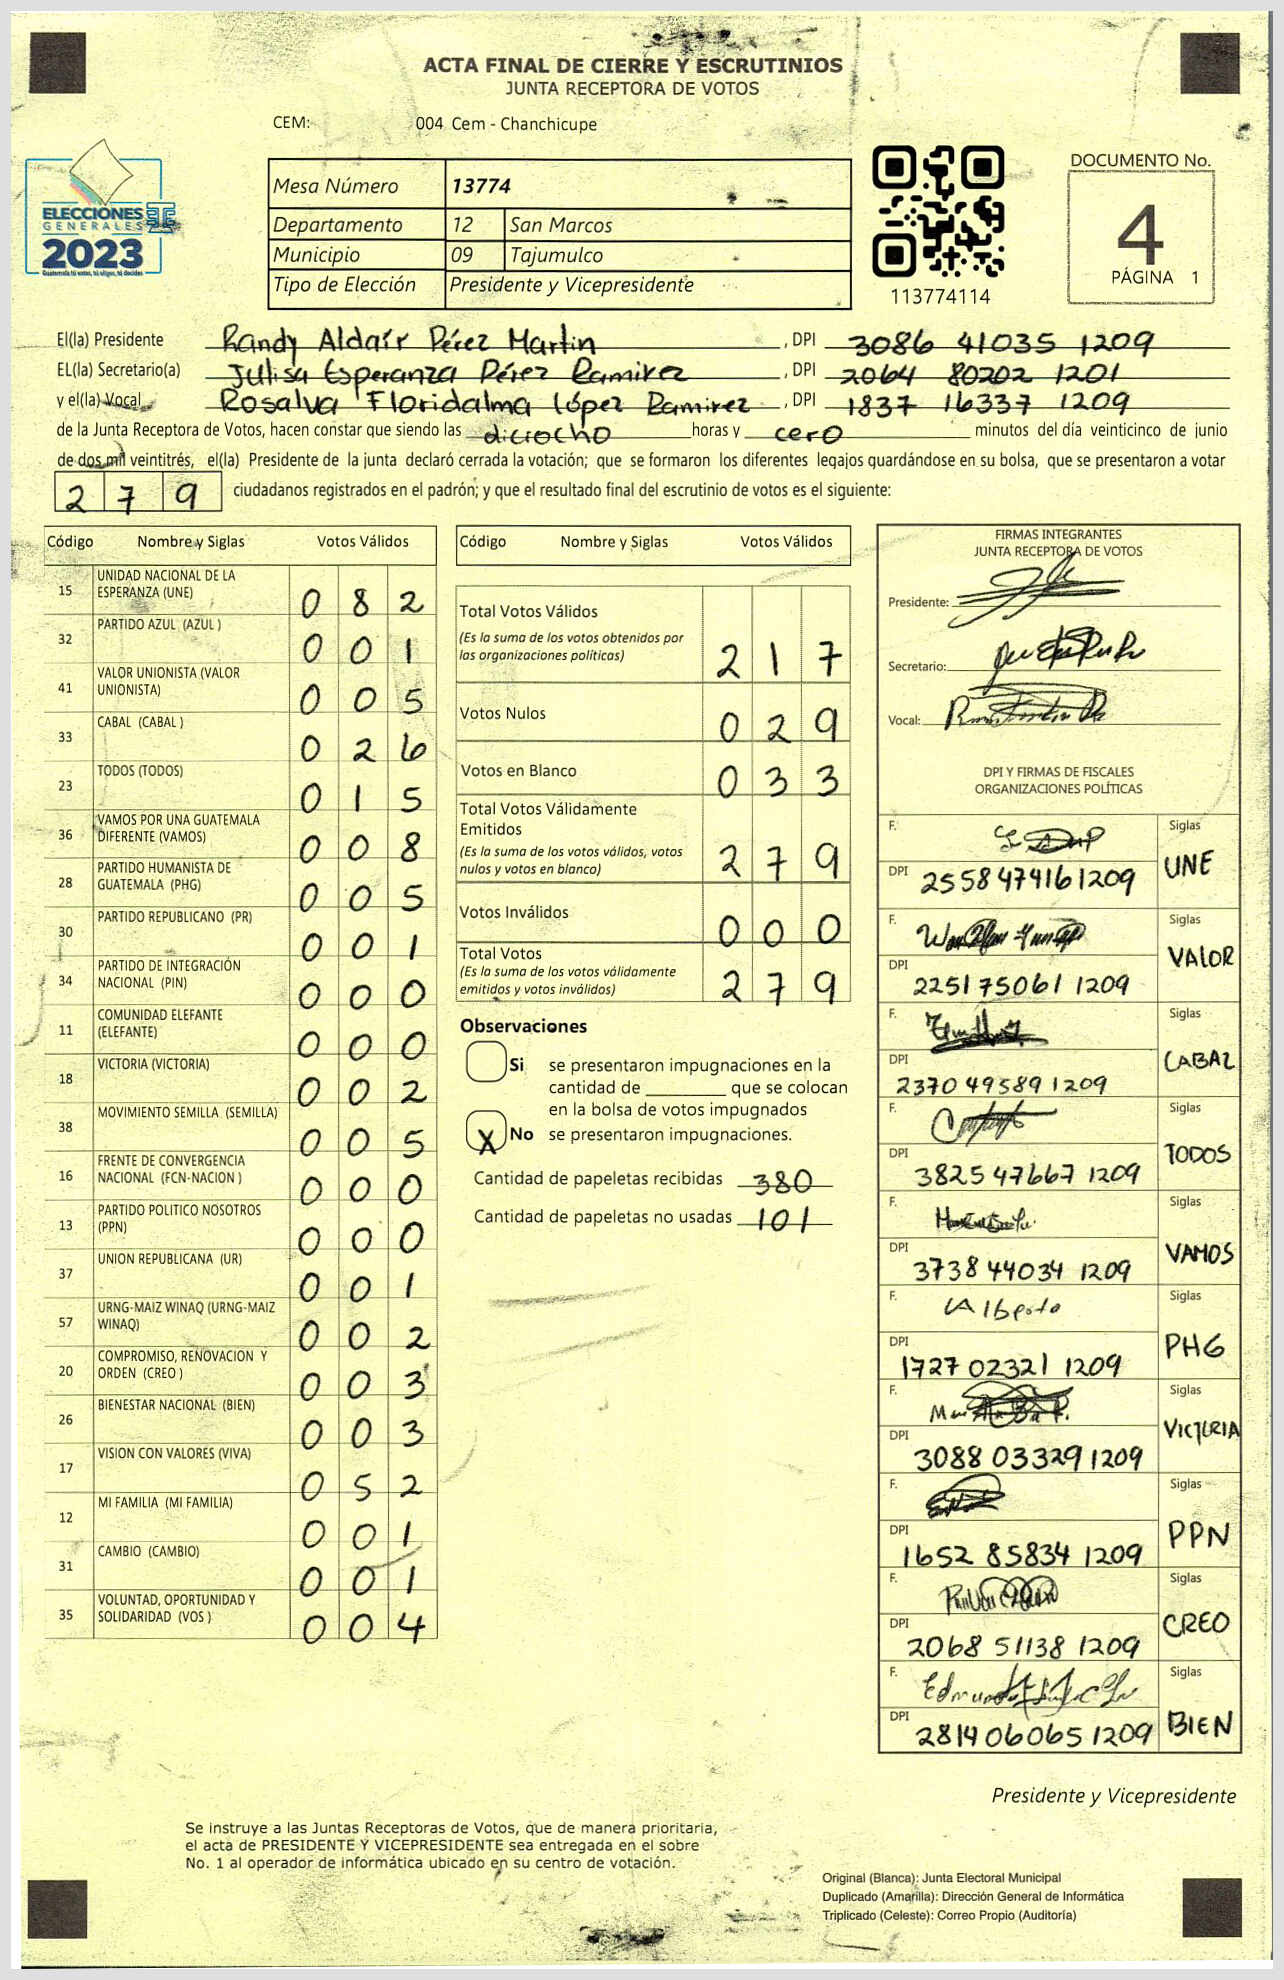 ACTA FINAL DE CIERRE Y ESCRUTINIOS
JUNTA RECEPTORA DE VOTOS
CEM: 004 Cem - Chanchicupe
ELECCIONES
GENERALES
2023
Guatemala tú votas, tú eliges, tú decides
Mesa Número 13774
Departamento 12 San Marcos
Municipio 09 Tajumulco
Tipo de Elección Presidente y Vicepresidente
113774114
DOCUMENTO No.
4
PÁGINA 1
El(la) Presidente Randy Aldair Pérez Martin , DPI 3086 41035 1209
EL(la) Secretario(a) Julisa Esperanza Pérez Ramirez , DPI 2064 80202 1201
y el(la) Vocal Rosalva Floridalma López Ramirez , DPI 1837 16337 1209
de la Junta Receptora de Votos, hacen constar que siendo las diciocho horas y cero minutos del día veinticinco de junio
de dos mil veintitrés, el(la) Presidente de la junta declaró cerrada la votación; que se formaron los diferentes legajos guardándose en su bolsa, que se presentaron a votar
279 ciudadanos registrados en el padrón; y que el resultado final del escrutinio de votos es el siguiente:
Código Nombre y Siglas Votos Válidos
15 UNIDAD NACIONAL DE LA ESPERANZA (UNE) 082
32 PARTIDO AZUL (AZUL ) 001
41 VALOR UNIONISTA (VALOR UNIONISTA) 005
33 CABAL (CABAL ) 026
23 TODOS (TODOS) 015
36 VAMOS POR UNA GUATEMALA DIFERENTE (VAMOS) 008
28 PARTIDO HUMANISTA DE GUATEMALA (PHG) 005
30 PARTIDO REPUBLICANO (PR) 001
34 PARTIDO DE INTEGRACIÓN NACIONAL (PIN) 000
11 COMUNIDAD ELEFANTE (ELEFANTE) 000
18 VICTORIA (VICTORIA) 002
38 MOVIMIENTO SEMILLA (SEMILLA) 005
16 FRENTE DE CONVERGENCIA NACIONAL (FCN-NACION ) 000
13 PARTIDO POLITICO NOSOTROS (PPN) 000
37 UNION REPUBLICANA (UR) 001
57 URNG-MAIZ WINAQ (URNG-MAIZ WINAQ) 002
20 COMPROMISO, RENOVACION Y ORDEN (CREO ) 003
26 BIENESTAR NACIONAL (BIEN) 003
17 VISION CON VALORES (VIVA) 052
12 MI FAMILIA (MI FAMILIA) 001
31 CAMBIO (CAMBIO) 001
35 VOLUNTAD, OPORTUNIDAD Y SOLIDARIDAD (VOS ) 004
Código Nombre y Siglas Votos Válidos
Total Votos Válidos
(Es la suma de los votos obtenidos por
las organizaciones políticas) 217
Votos Nulos 029
Votos en Blanco 033
Total Votos Válidamente
Emitidos
(Es la suma de los votos válidos, votos
nulos y votos en blanco) 279
Votos Inválidos 000
Total Votos
(Es la suma de los votos válidamente
emitidos y votos inválidos) 279
Observaciones
Si se presentaron impugnaciones en la
cantidad de ________ que se colocan
en la bolsa de votos impugnados
X No se presentaron impugnaciones.
Cantidad de papeletas recibidas 380
Cantidad de papeletas no usadas 101
FIRMAS INTEGRANTES
JUNTA RECEPTORA DE VOTOS
Presidente:
Secretario:
Vocal:
DPI Y FIRMAS DE FISCALES
ORGANIZACIONES POLÍTICAS
F. Siglas
DPI 2558474161209 UNE
F. Siglas
DPI 2251 75061 1209 VALOR
F. Siglas
DPI 2370 49589 1209 CABAL
F. Siglas
DPI 3825 47667 1209 TODOS
F. Siglas
DPI 3738 44034 1209 VAMOS
F. Siglas
DPI 1727 02321 1209 PHG
F. Siglas
DPI 3088 03329 1209 VICTORIA
F. Siglas
DPI 1652 85834 1209 PPN
F. Siglas
DPI 2068 51138 1209 CREO
F. Siglas
DPI 2814 06065 1209 BIEN
Presidente y Vicepresidente
Se instruye a las Juntas Receptoras de Votos, que de manera prioritaria,
el acta de PRESIDENTE Y VICEPRESIDENTE sea entregada en el sobre
No. 1 al operador de informática ubicado en su centro de votación.
Original (Blanca): Junta Electoral Municipal
Duplicado (Amarilla): Dirección General de Informática
Triplicado (Celeste): Correo Propio (Auditoría)